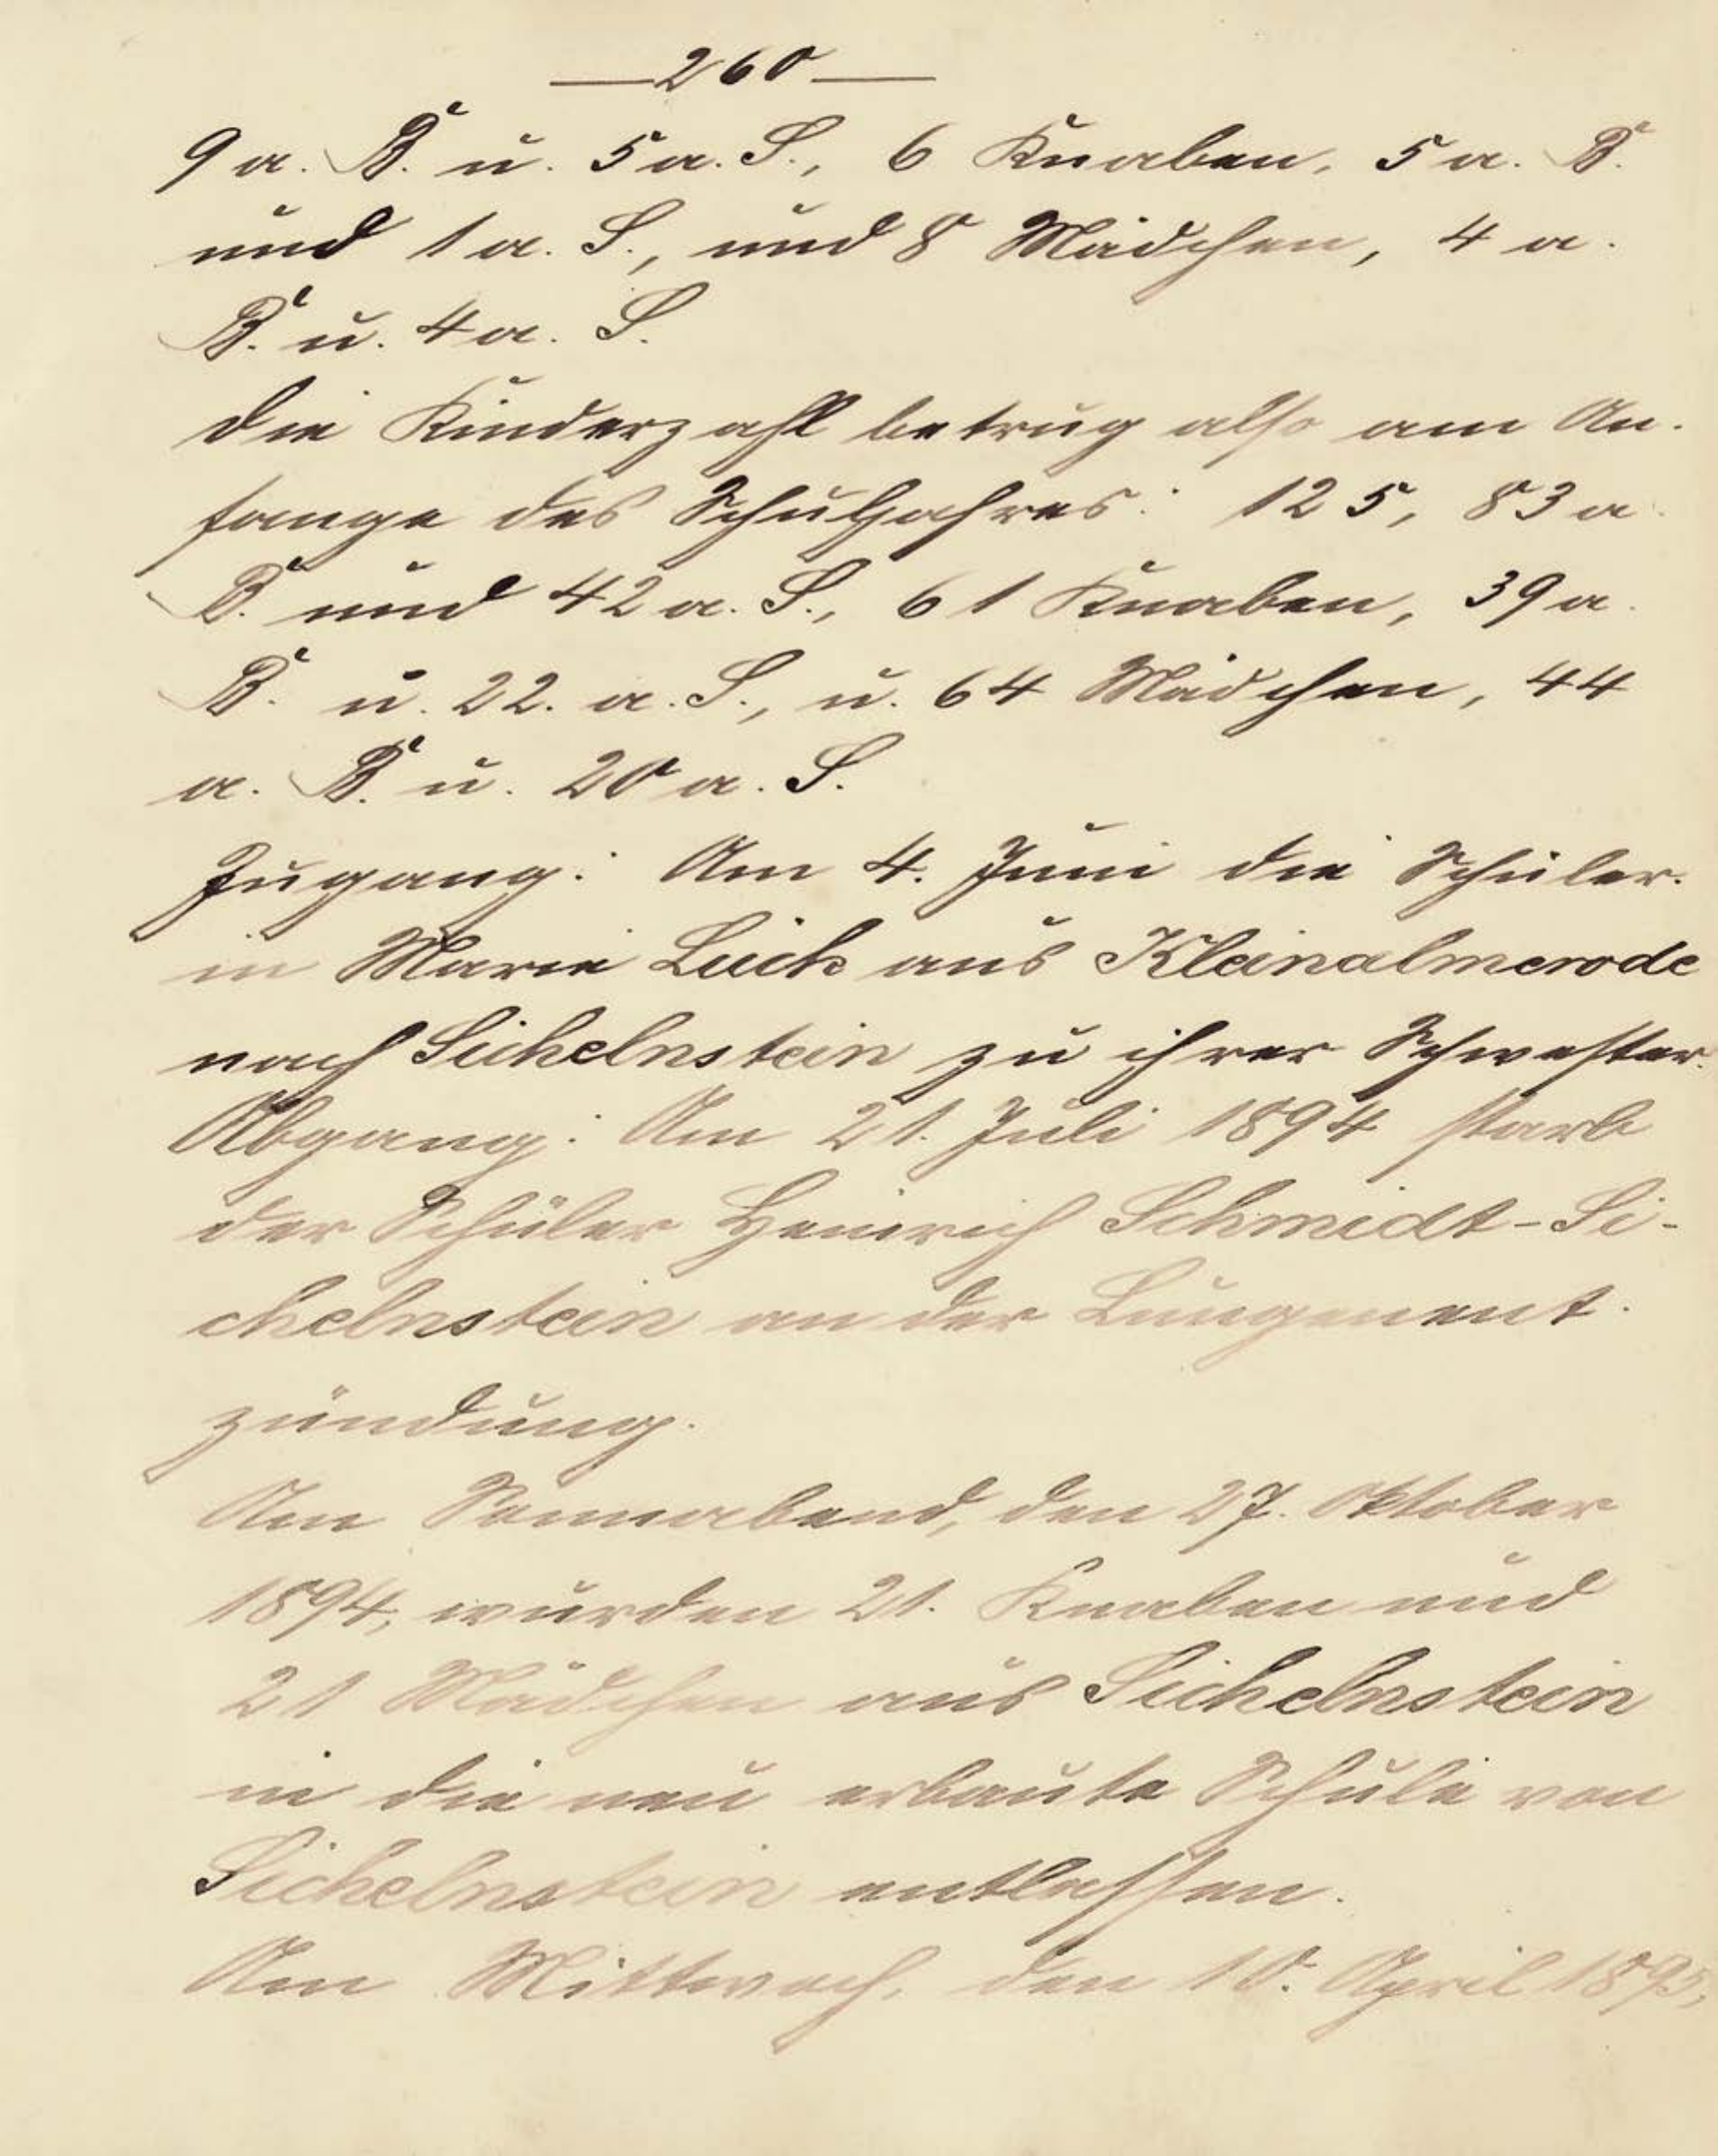 — 260 —
9 a. B. u. 5 a. S., 6 Knaben, 5 a. B.
und 1 a. S., und 8 Mädchen, 4 a.
B. u. 4 a. S.
Die Kinderzahl betrug also am An-
fange des Schuljahres: 125, 83 a.
B. und 42 a. S., 61 Knaben, 39 a.
B. u. 22. a. S., u. 64 Mädchen, 44
a. B. u. 20 a. S.
Zugang: Am 4. Juni die Schüler-
in Marie Luck aus Kleinalmerode
nach Sichelnstein zu ihrer Schwester.
Abgang: Am 21. Juli 1894 starb
der Schüler Heinrich Schmidt-Si-
chelnstein an der Lungenent-
zündung.
Am Sonnabend, den 27. Oktober
1894, wurden 21. Knaben und
21 Mädchen aus Sichelnstein
in die neu erbaute Schule von
Sichelnstein entlassen.
Am Mittwoch, den 10. April 1895,